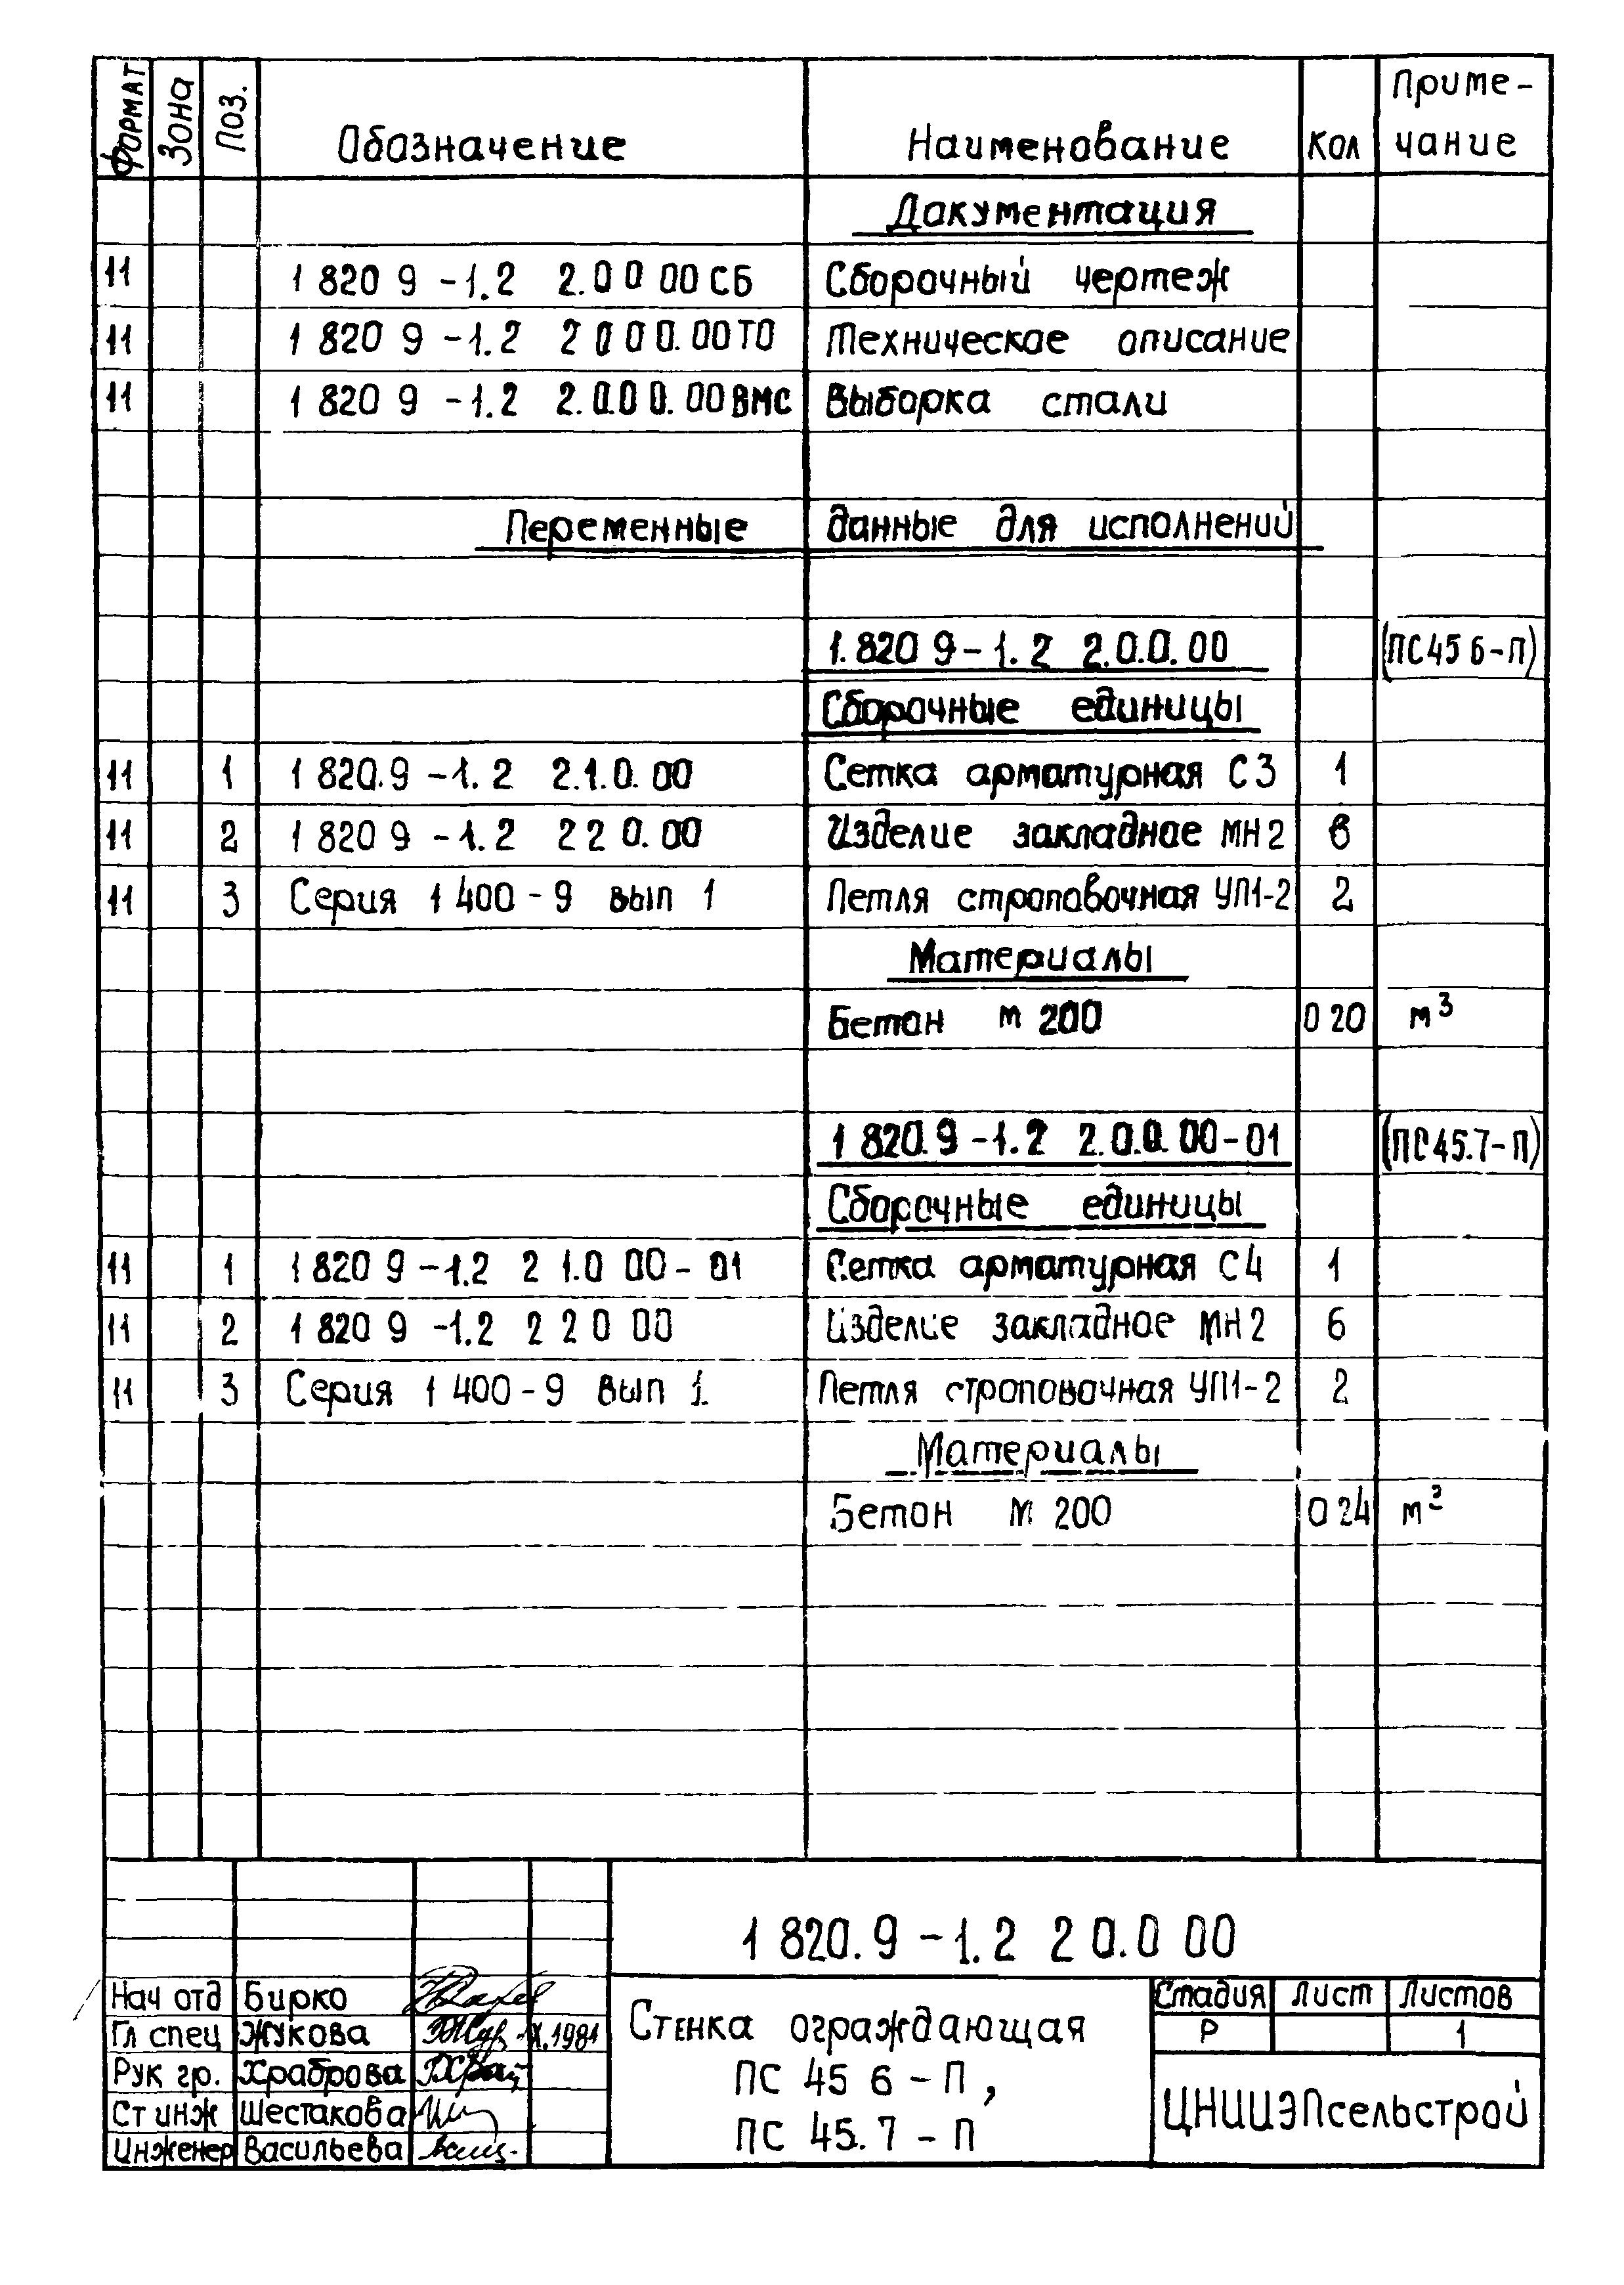 Формат Зона Поз. Обозначение Наименование Кол Приме-
чание
Документация
11 1 820 9 -1.2 2.0 0 00 СБ Сборочный чертеж
11 1 820 9 -1.2 2 0 0 0.00 ТО Техническое описание
11 1 820 9 -1.2 2.0.0 0.00 ВМС Выборка стали
Переменные данные для исполнений
1.820 9-1.2 2.0.0.00 (ПС45 6-П)
Сборочные единицы
11 1 1 820.9 -1.2 2.1.0.00 Сетка арматурная С3 1
11 2 1 820 9 -1.2 2 2 0.00 Изделие закладное МН2 6
11 3 Серия 1 400-9 вып 1 Петля строповочная УП1-2 2
Материалы
Бетон м 200 0 20 м³
1 820.9 -1.2 2.0.0.00-01 (ПС45.7-П)
Сборочные единицы
11 1 1 820 9 -1.2 2 1.0 00-01 Сетка арматурная С4 1
11 2 1 820 9 -1.2 2 2 0 00 Изделие закладное МН2 6
11 3 Серия 1 400-9 вып 1. Петля строповочная УП1-2 2
Материалы
Бетон м 200 0 24 м³
1 820.9 -1.2 2 0.0 00
Нач отд Бирко
Гл спец Жукова X.1981
Рук гр. Храброва
Ст инж Шестакова
Инженер Васильева
Стенка ограждающая
ПС 45 6-П,
ПС 45.7-П
Стадия Лист Листов
Р 1
ЦНИИЭПсельстрой